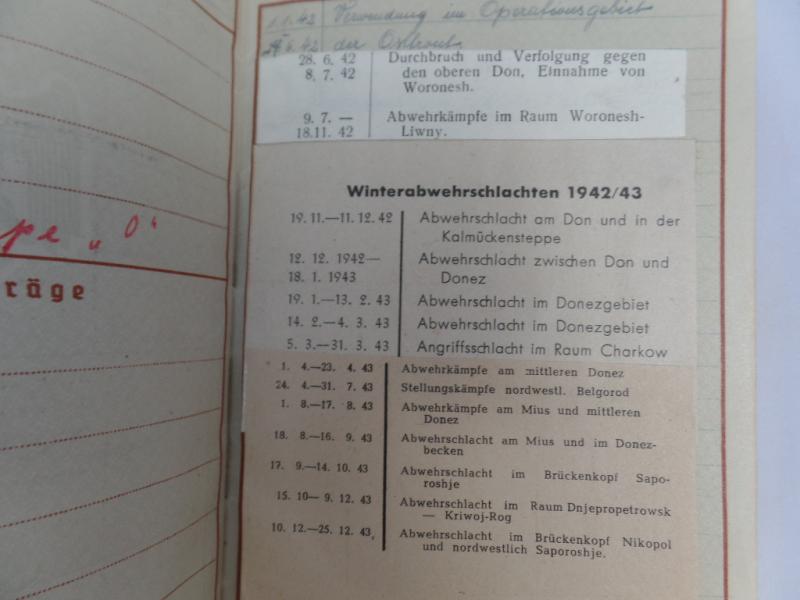 pe „O“
räge
1.1.42 Verwendung im Operationsgebiet
6.42 der Ostfront
28. 6. 42 Durchbruch und Verfolgung gegen
8. 7. 42 den oberen Don, Einnahme von
Woronesh.
9. 7. — Abwehrkämpfe im Raum Woronesh-
18.11. 42 Liwny.
Winterabwehrschlachten 1942/43
19. 11.—11. 12. 42 Abwehrschlacht am Don und in der
Kalmückensteppe
12. 12. 1942— Abwehrschlacht zwischen Don und
18. 1. 1943 Donez
19. 1.—13. 2. 43 Abwehrschlacht im Donezgebiet
14. 2.—4. 3. 43 Abwehrschlacht im Donezgebiet
5. 3.—31. 3. 43 Angriffsschlacht im Raum Charkow
1. 4.—23. 4. 43 Abwehrkämpfe am mittleren Donez
24. 4.—31. 7. 43 Stellungskämpfe nordwestl. Belgorod
1. 8.—17. 8. 43 Abwehrkämpfe am Mius und mittleren
Donez
18. 8.—16. 9. 43 Abwehrschlacht am Mius und im Donez-
becken
17. 9.—14. 10. 43 Abwehrschlacht im Brückenkopf Sapo-
roshje
15. 10— 9. 12. 43 Abwehrschlacht im Raum Dnjepropetrowsk
— Kriwoj-Rog
10. 12.—25. 12. 43, Abwehrschlacht im Brückenkopf Nikopol
und nordwestlich Saporoshje.